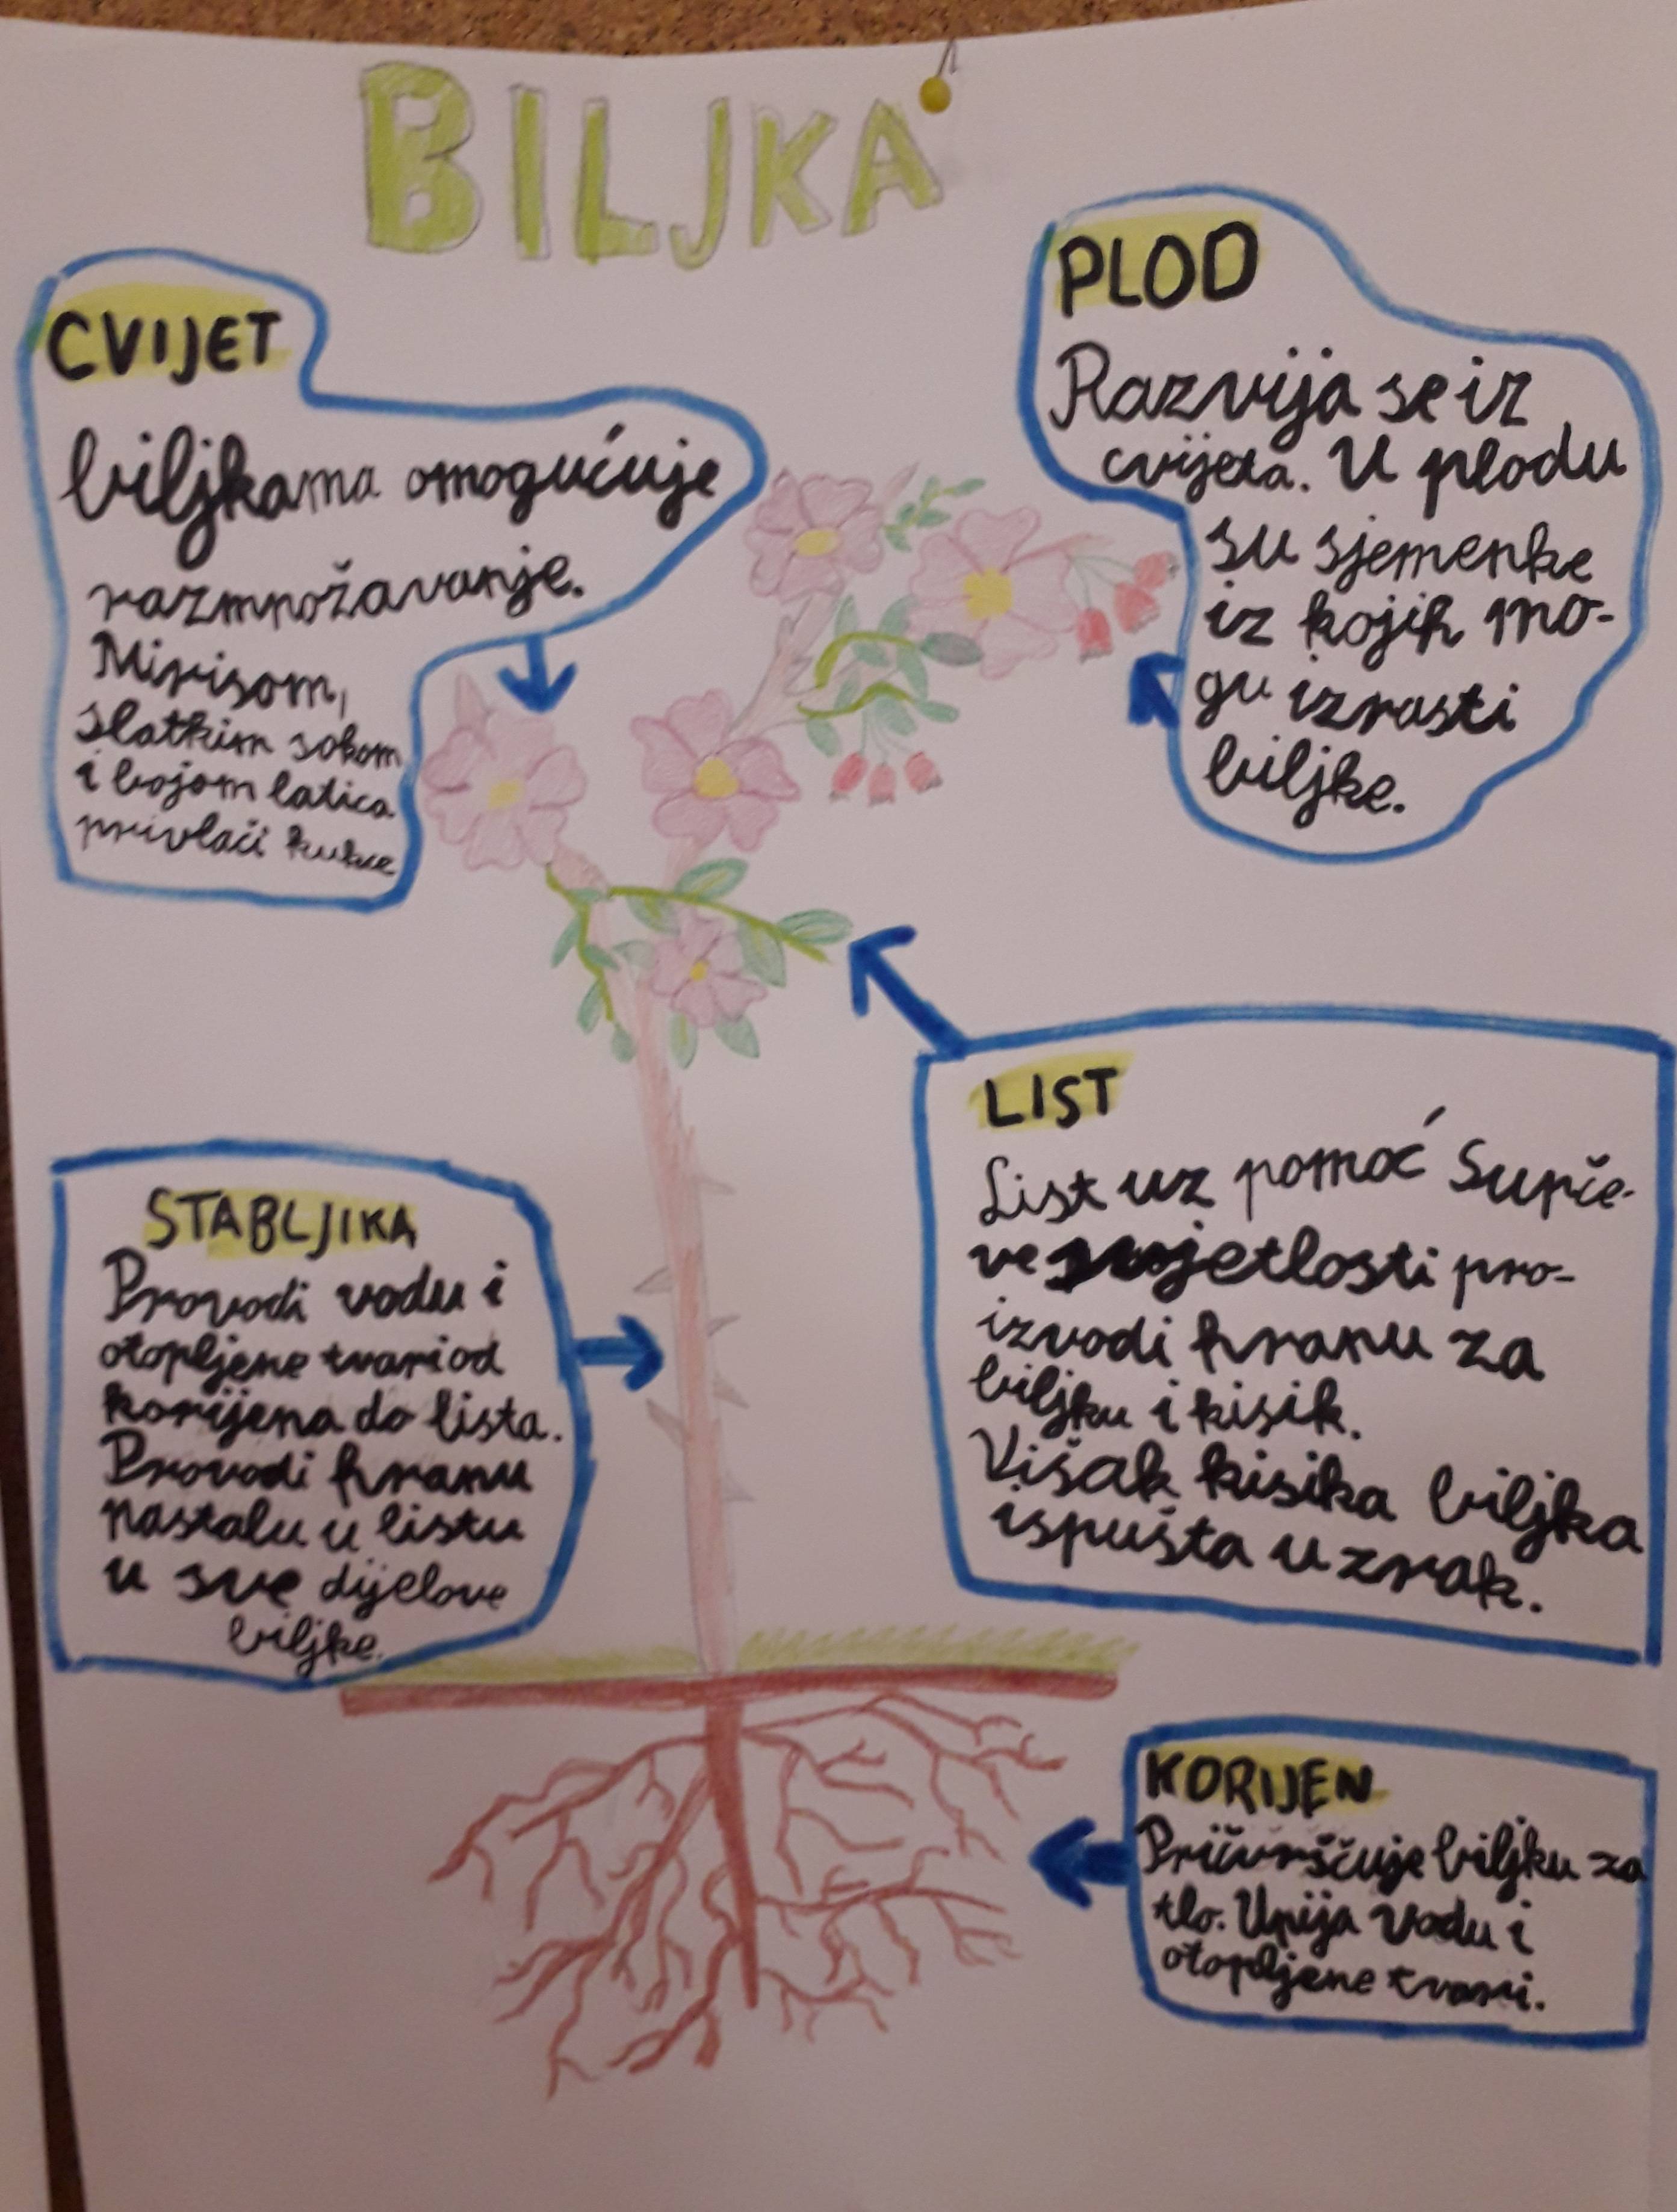 BILJKA
CVIJET
biljkama omogućuje
razmnožavanje.
Mirisom,
slatkim sokom
i bojom latica
privlači kukce
PLOD
Razvija se iz
cvijeta. U plodu
su sjemenke
iz kojih mo-
gu izrasti
biljke.
LIST
List uz pomoć Sunče-
ve svjetlosti pro-
izvodi hranu za
biljku i kisik.
Višak kisika biljka
ispušta u zrak.
STABLJIKA
Provodi vodu i
otopljene tvari od
korijena do lista.
Provodi hranu
nastalu u listu
u sve dijelove
biljke.
KORIJEN
Pričvršćuje biljku za
tlo. Upija vodu i
otopljene tvari.